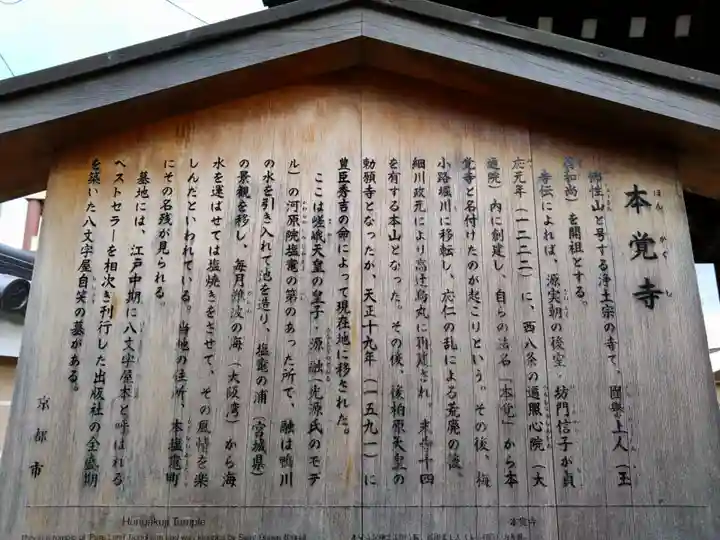 本覚寺
ほんがくじ
佛性山と号する浄土宗の寺で、團譽上人（玉
翁和尚）を開祖とする。
寺伝によれば、源実朝の後室、坊門信子が貞
応元年（一二二二）に、西八条の遍照心院（大
通院）内に創建し、自らの法名「本覚」から本
覚寺と名付けたのが起こりという。その後、梅
小路堀川に移転し、応仁の乱による荒廃の後、
細川政元により高辻烏丸に再建され、末寺十四
を有する本山となった。その後、後柏原天皇の
勅願寺となったが、天正十九年（一五九一）に
豊臣秀吉の命によって現在地に移された。
ここは嵯峨天皇の皇子・源融（光源氏のモデ
ル）の河原院塩竈の第のあった所で、融は鴨川
の水を引き入れて池を造り、塩竈の浦（宮城県）
の景観を移し、毎月難波の海（大阪湾）から海
水を運ばせては塩焼きをさせて、その風情を楽
しんだといわれている。当地の住所、本塩竈町
にその名残が見られる。
墓地には、江戸中期に八文字屋本と呼ばれる
ベストセラーを相次ぎ刊行した出版社の全盛期
を築いた八文字屋自笑の墓がある。
京都市
Hongakuji Temple
本覚寺